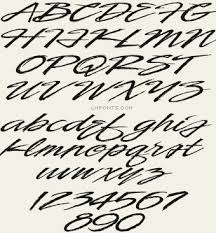 ABCDEFG
HIJKLMN
OPQRST
UVWXYZ
LHFFONTS.COM
abcdefghij
klmnopqrst
uvwxyz
1234567
890